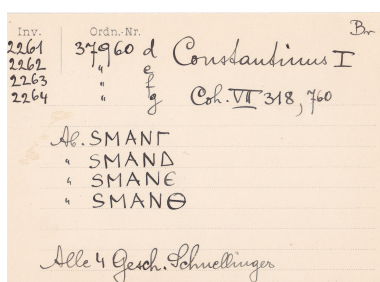 Inv. Ordn.-Nr. Br
2261 37960 d Constantinus I
2262 " e
2263 " f
2264 " g Coh. VII 318, 760
Ab. SMANΓ
" SMANΔ
" SMANЄ
" SMANΘ
Alle 4 Gesch. Schnellinger